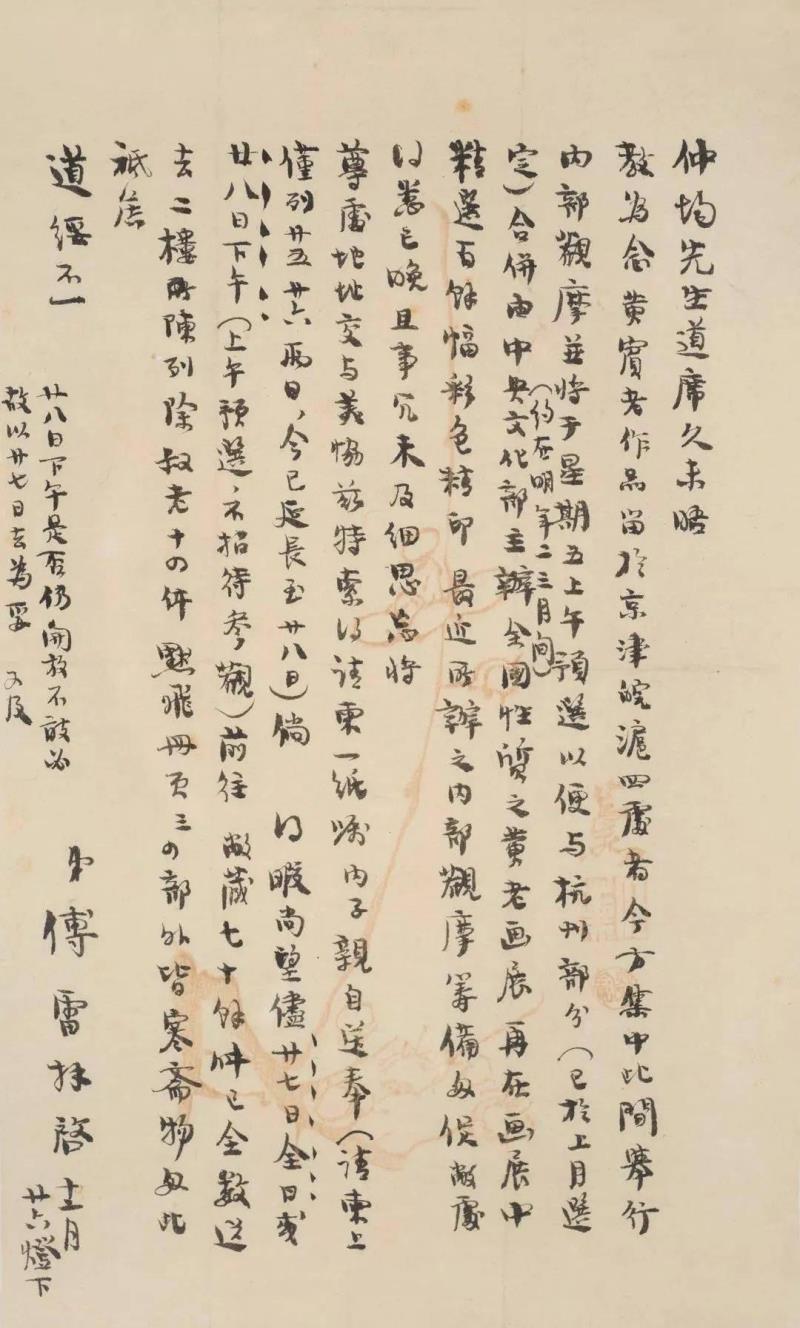 仲均先生道席久未晤
教为念黄賓老作品留於京津皖滬四處者今方集中此間舉行
内部觀摩並将于星期五上午預選以便与杭州部分(已於上月選
定)合併由中央文化部主辦全國性質之黄老画展再在画展中
(約在明年二三月间)
精選百餘幅彩色精印最近所辦之内部觀摩筹備匆促敝處
得悉已晚且事冗未及细思忘将
尊處地址交与美協兹特索得请柬一纸嘱内子親自送奉(请柬上
僅列廿五廿六兩日，今已延長至廿八日)倘得暇尚望儘廿七日全日或
廿八日下午(上午預選，不招待参觀)前往敝藏七十餘件已全数送
去二樓所陳列除叔老十の件默飛冊页三の部外皆寒斋物匆此
祗侯
道綏不一
弟傅雷拜啓十一月
廿六燈下
廿八日下午是否仍開放不敢必
故以廿七日去為妥 又及